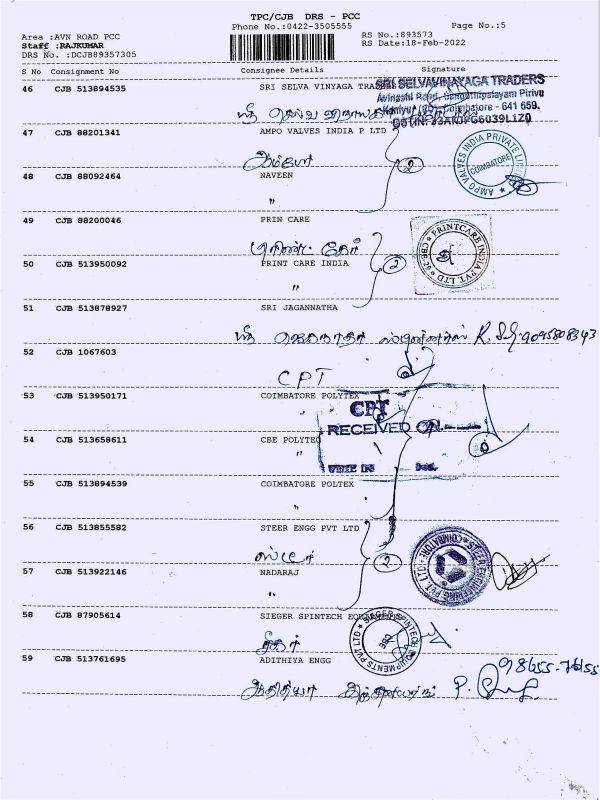 TPC/CJB DRS - PCC
Phone No.:0422-3505555
Page No.:5
Area :AVN ROAD PCC
RS No.:893573
Staff :RAJKUMAR
RS Date:18-Feb-2022
DRS No. :DCJB89357305
S No Consignment No Consignee Details Signature
46 CJB 513894535 SRI SELVA VINYAGA TRAD
SRI SELVAVINAYAGA TRADERS
Avinashi Road,
Coimbatore - 641 659.
ஸ்ரீ செல்வ
47 CJB 88201341 AMPO VALVES INDIA P LTD
AMPO VALVES INDIA PRIVATE
COIMBATORE
அம்போ
2
48 CJB 88092464 NAVEEN
"
49 CJB 88200046 PRIN CARE
PRINTCARE INDIA PVT. LTD
பிரிண்ட் கேர்
2
50 CJB 513950092 PRINT CARE INDIA
"
51 CJB 513878927 SRI JAGANNATHA
ஸ்ரீ ஜெகநாதா
52 CJB 1067603
CPT
53 CJB 513950171 COIMBATORE POLYTEX
"
CPT
RECEIVED ON
54 CJB 513658611 CBE POLYTEC
"
55 CJB 513894539 COIMBATORE POLTEX
"
56 CJB 513855582 STEER ENGG PVT LTD
ஸ்டீர்
2
STEER ENGINEERING PVT. LTD.
COIMBATORE
57 CJB 513922146 NADARAJ
"
58 CJB 87905614 SIEGER SPINTECH EQ
SIEGER SPINTECH EQUIPMENTS PVT LTD
சீகர்
59 CJB 513761695 ADITHIYA ENGG
98655-76155
ஆதித்யா